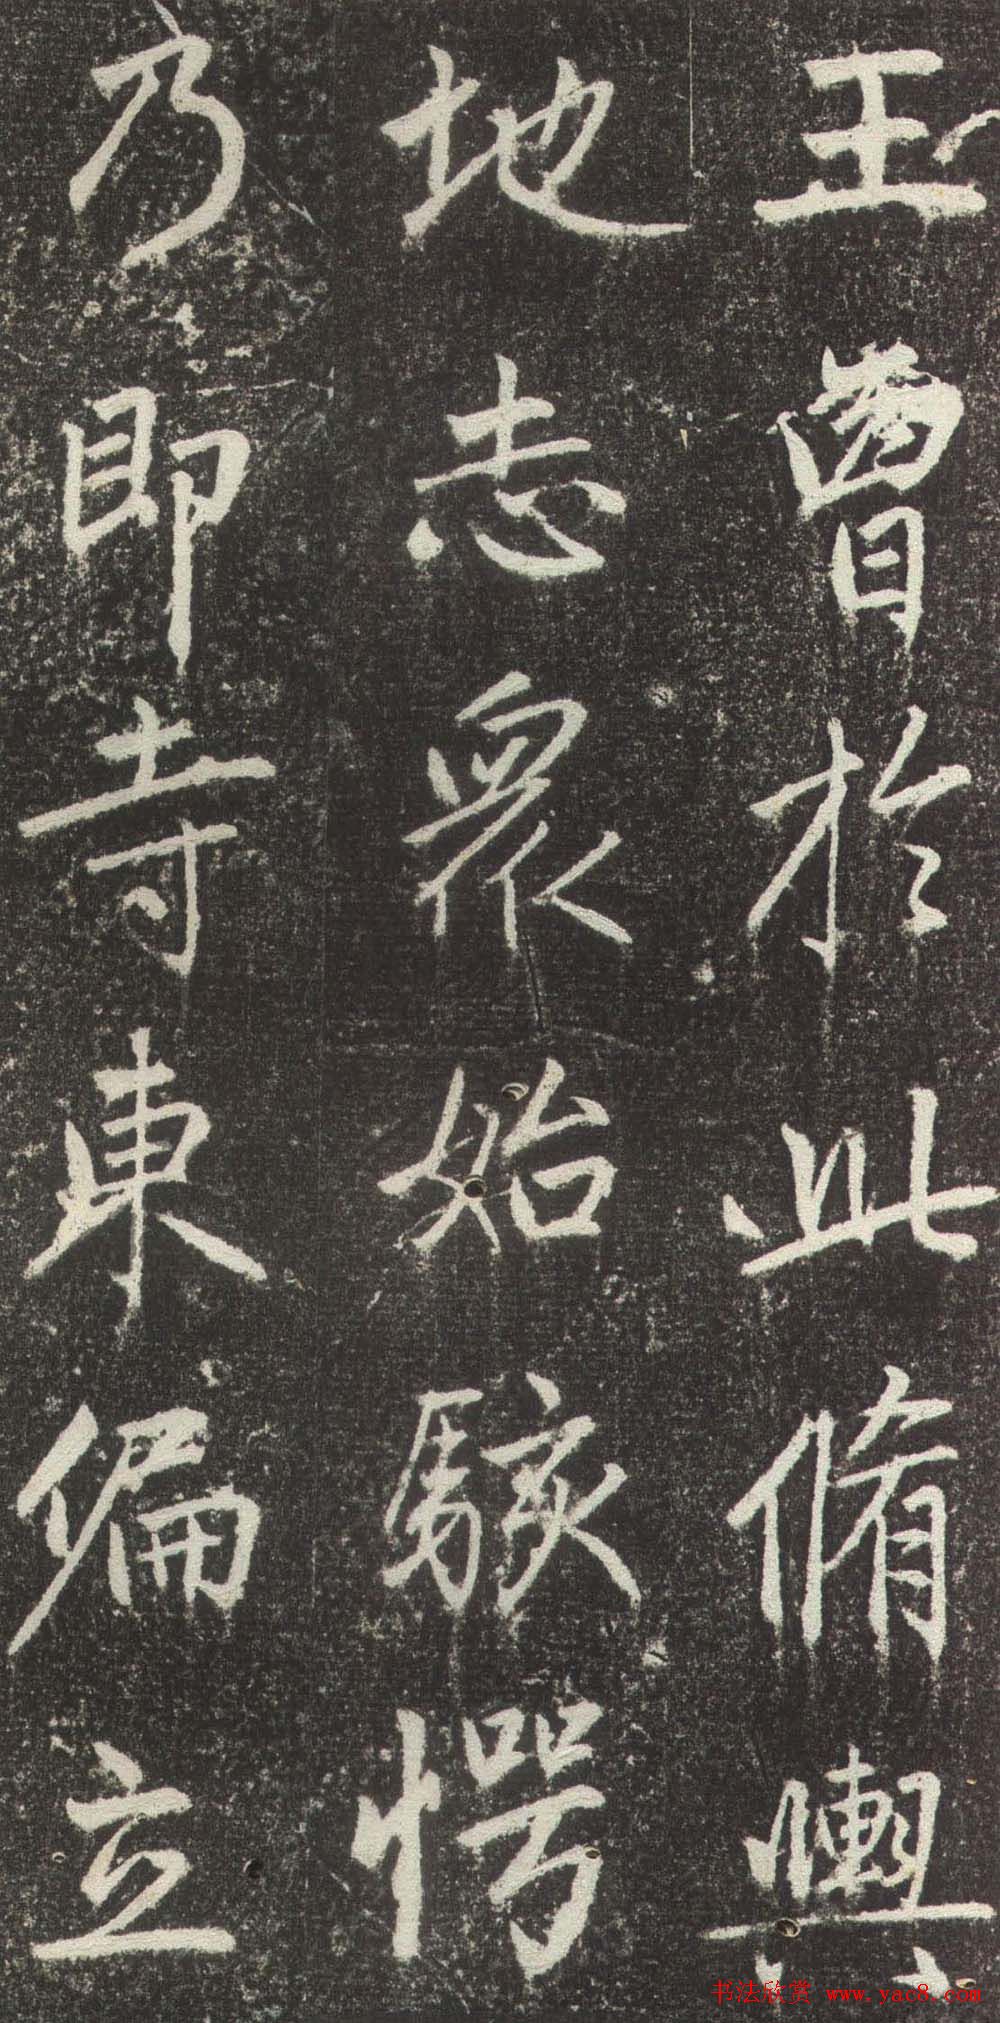 王曾於此脩輿
地志衆始駭愕
乃即寺東偏立
书法欣赏 www.yac8.com